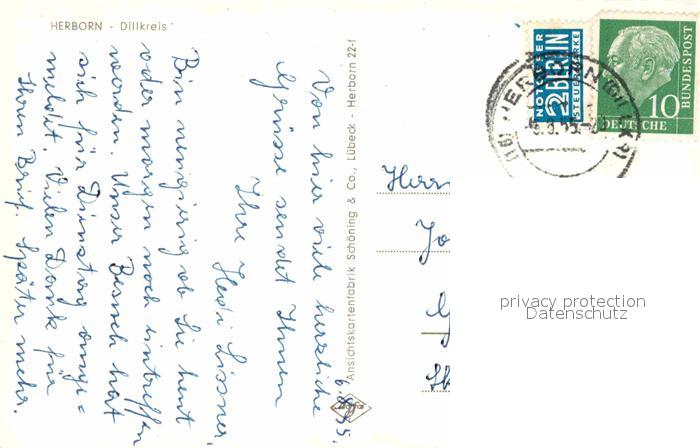 HERBORN - Dillkreis
6.8.55.
Von hier viele herzliche
Grüsse sendet Ihnen
Ihre Hedi Lissner
Bin neugierig ob Sie heut
oder morgen noch eintreffen
werden. Unser Besuch hat
sich für Dienstag ange=
meldet. Vielen Dank für
Ihren Brief. Später mehr.
Ansichtskartenfabrik Schöning & Co., Lübeck - Herborn 22-1
NOTOPFER
2 BERLIN
STEUERMARKE
10
DEUTSCHE
BUNDESPOST
HERBORN
Herrn
Jo
privacy protection
Datenschutz